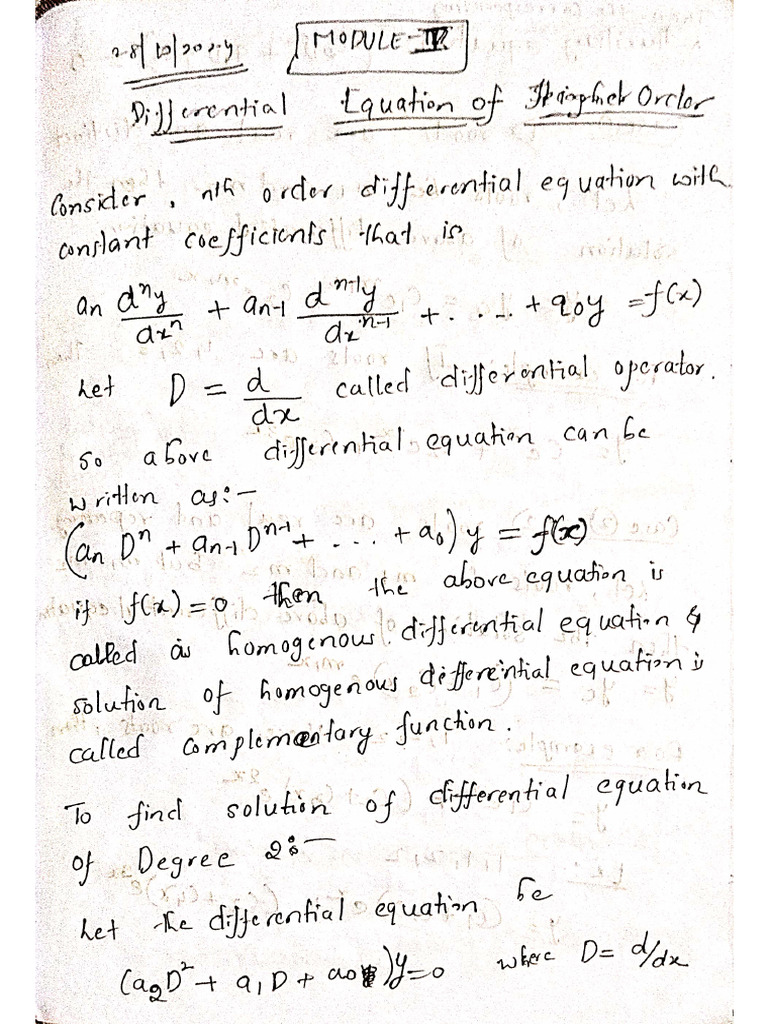 28/10/2024
MODULE-IV
Differential Equation of Higher Order
Consider, nth order differential equation with
constant coefficients that is
an dⁿy/dxⁿ + an-1 dⁿ⁻¹y/dxⁿ⁻¹ + . . .. + a0y = f(x)
Let D = d/dx called differential operator.
So above differential equation can be
written as:-
(an Dⁿ + an-1 Dⁿ⁻¹ + . . . + a0) y = f(x)
if f(x) = 0 then the above equation is
called as homogenous differential equation &
solution of homogenous differential equation is
called complementary function.
To find solution of differential equation
of Degree 2:-
Let the differential equation be
(a2D² + a1D + a0)y=0 where D= d/dx